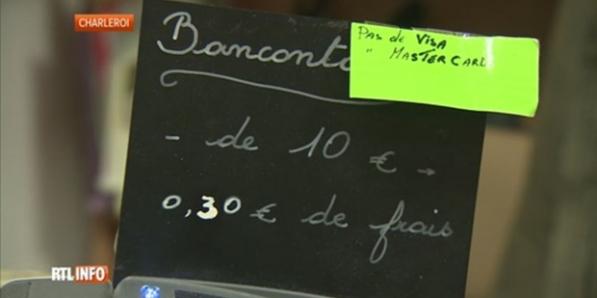 CHARLEROI
Banconta
Pas de VISA
" MASTERCARD
- de 10 € →
0,30 € de frais
RTL INFO